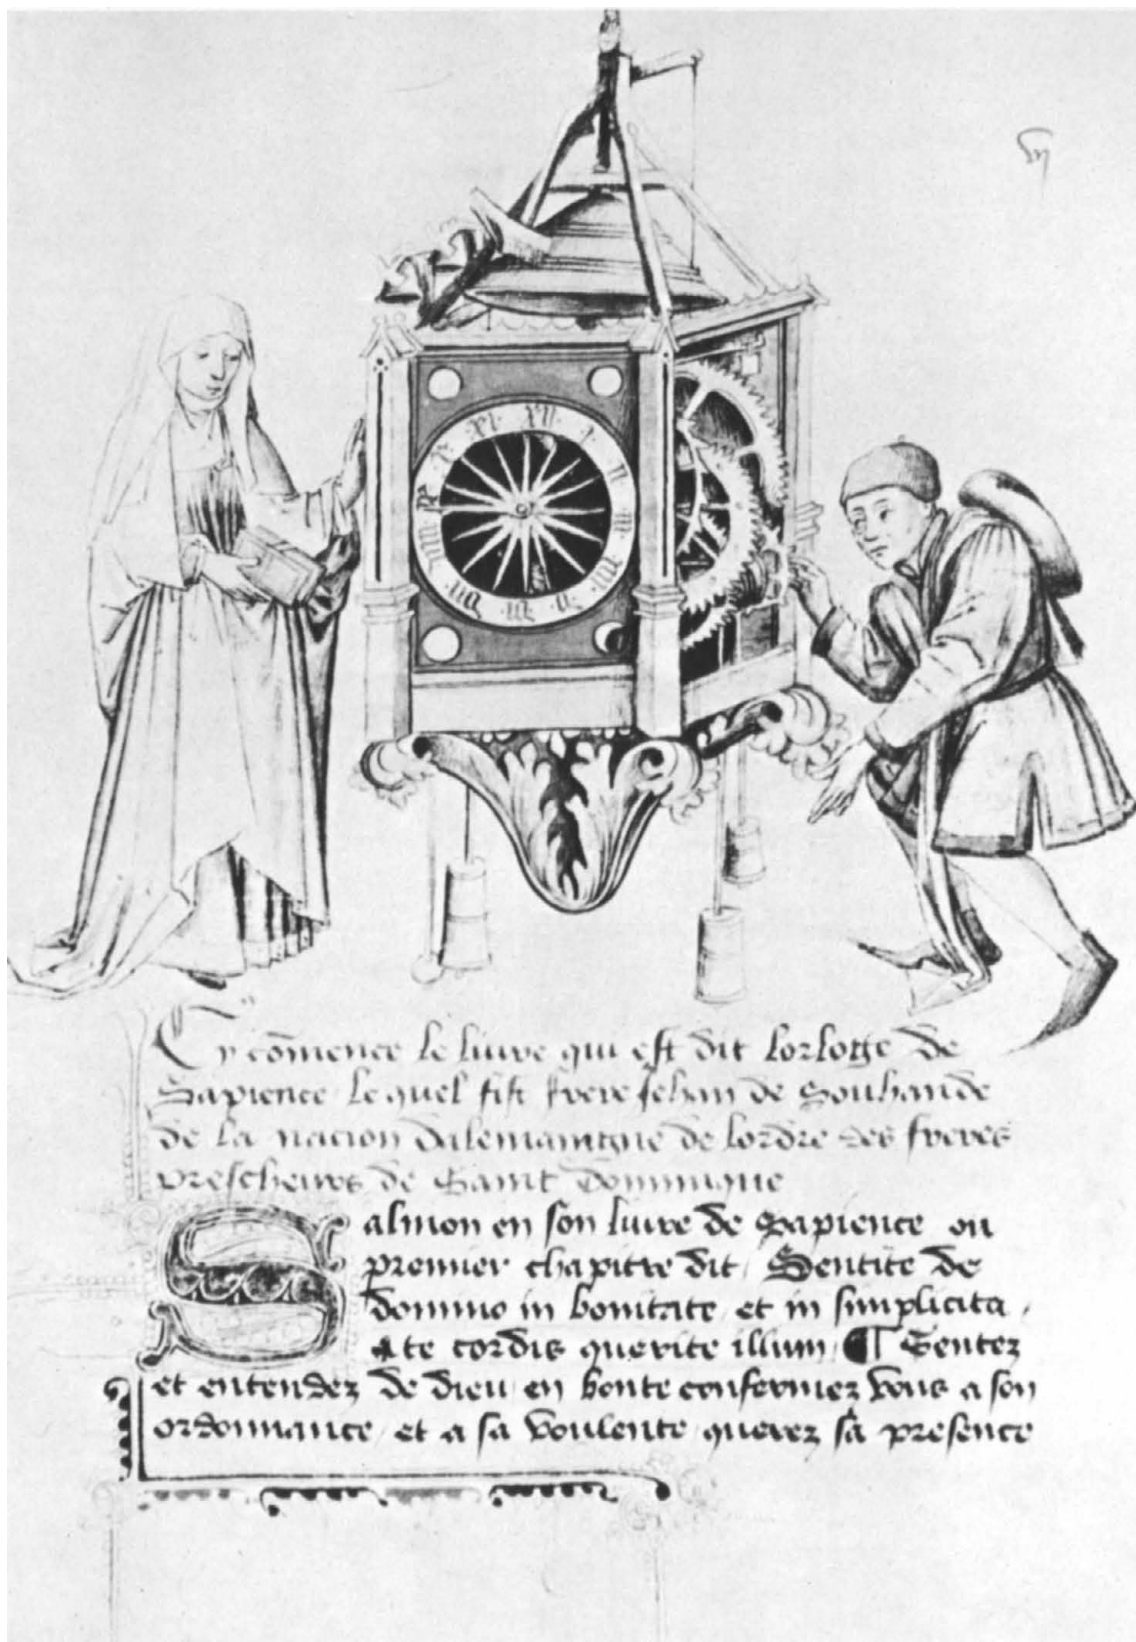 XII
I
II
III
IIII
XI
Cy cõmence le livre qui est dit lorloge de
Sapience lequel fist frere Jehan de Souhande
de la nacion dalemaingne de lordre des freres
prescheurs de Saint Dominique
Salmon en son livre de Sapience ou
premier chapitre dit / Sentite de
domino in bonitate et in simplicita /
ate cordis querite illum / ¶ Sentez
et entendez de dieu en bonte confermez vous a son
ordonnance / et a sa voulente querez sa presence